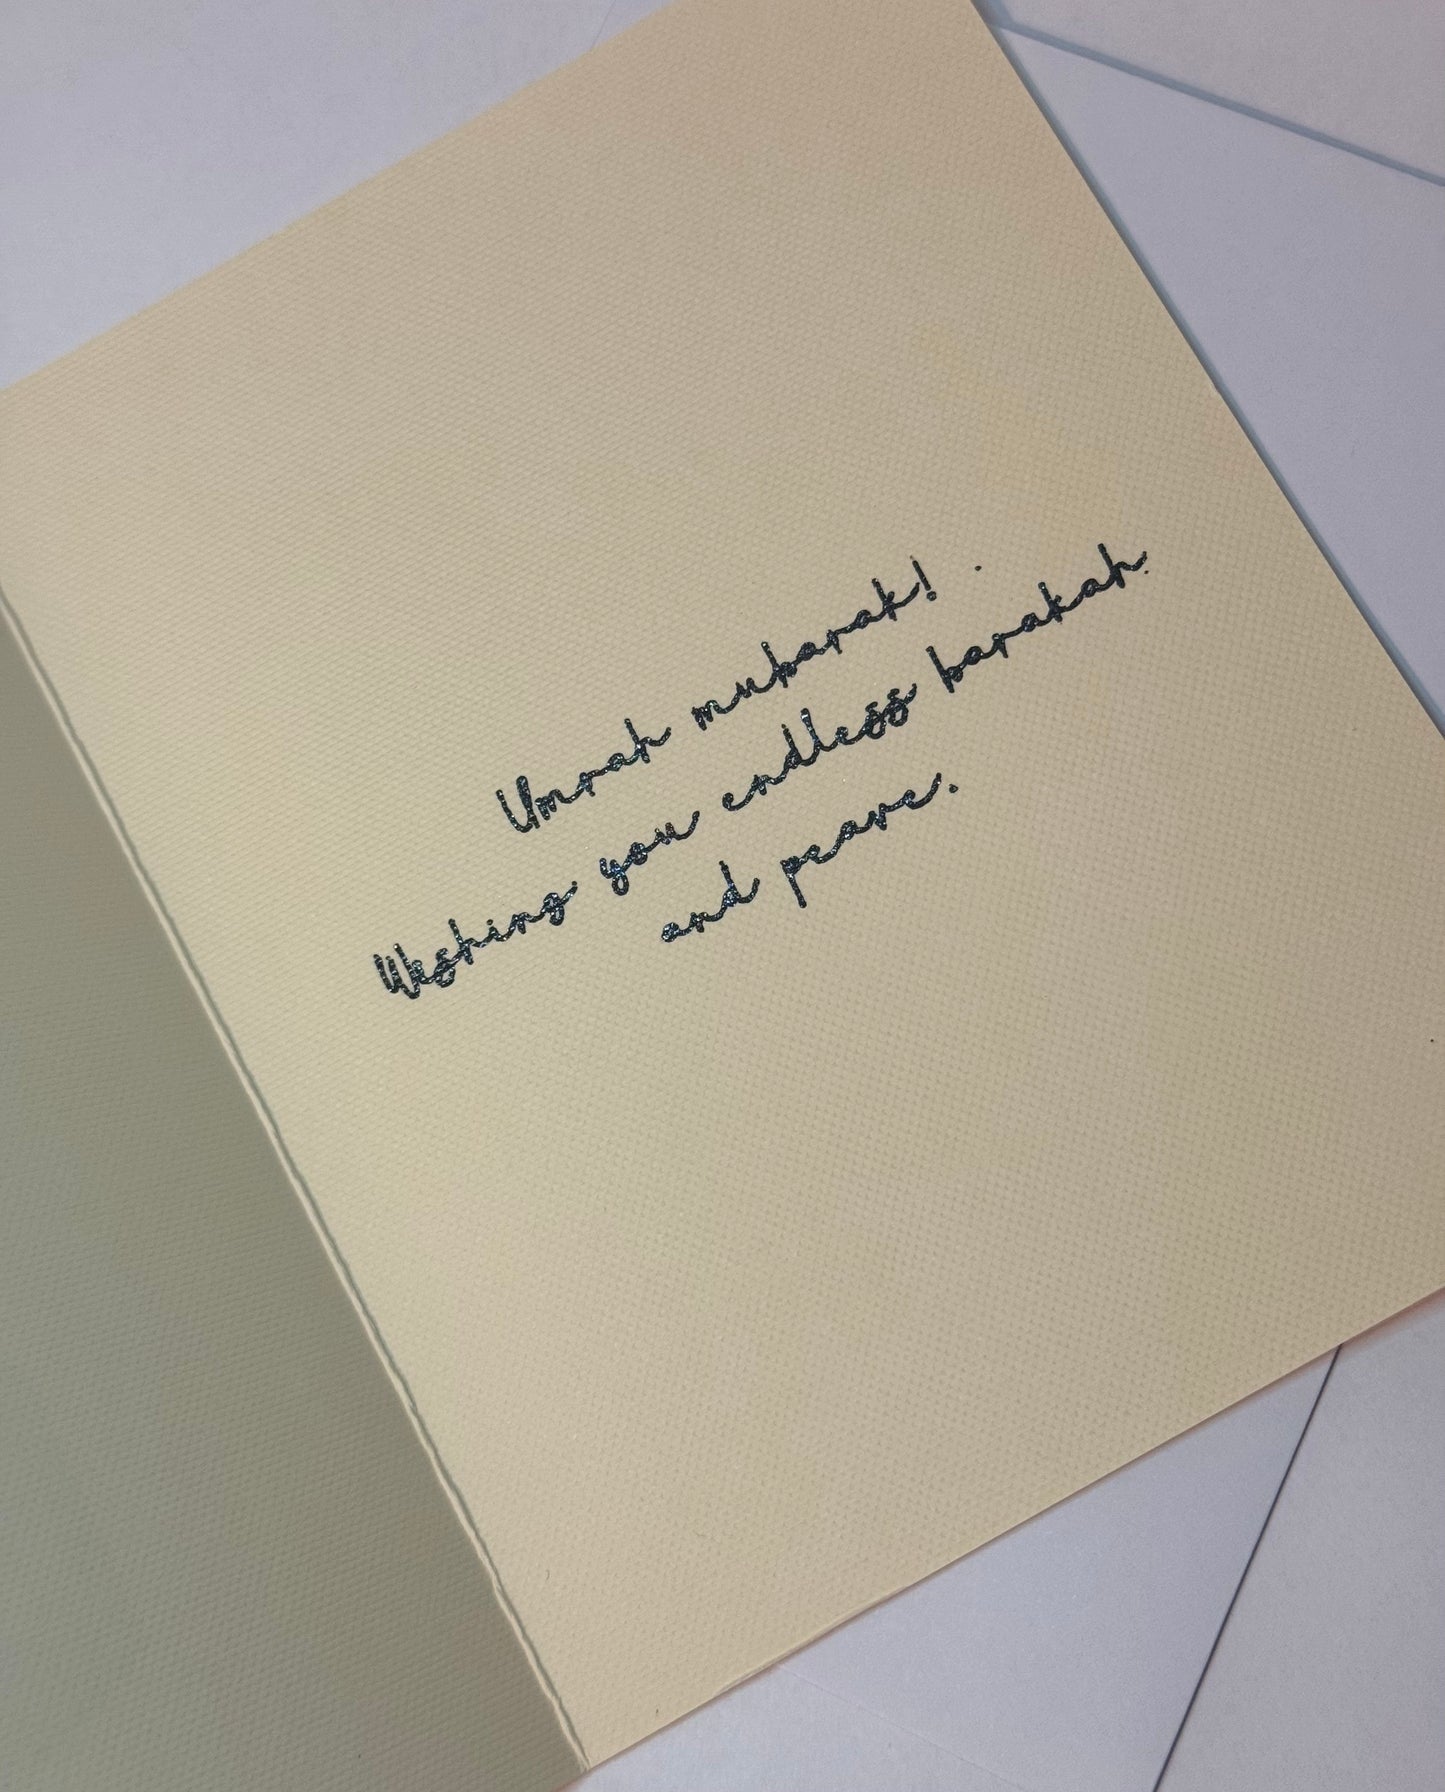 Umrah mubarak!
Wishing you endless barakah
and peace.